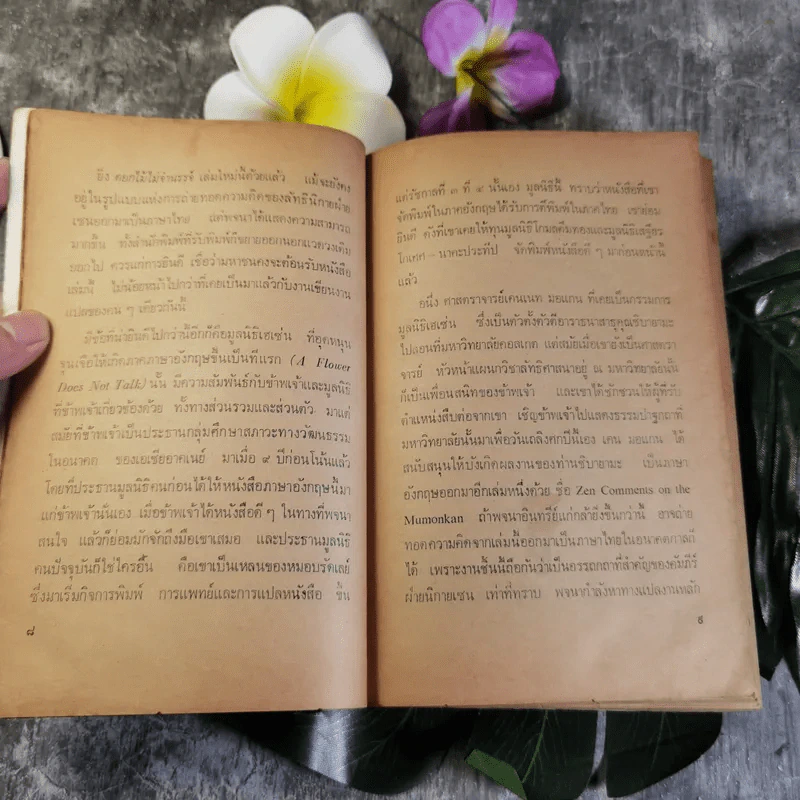 ยิ่ง ดอกไม้ไม่จำนรรจ์ เล่มใหม่นี้ด้วยแล้ว แม้จะยังคง
อยู่ในรูปแบบแห่งการถ่ายทอดความคิดของลัทธินิกายฝ่าย
เซนออกมาเป็นภาษาไทย แต่พจนาได้แสดงความสามารถ
มากขึ้น ทั้งสำนักพิมพ์ที่รับพิมพ์ก็ขยายออกนอกแวดวงเดิม
ออกไป ควรแก่การยินดี เชื่อว่ามหาชนคงจะต้อนรับหนังสือ
เล่มนี้ ไม่น้อยหน้าไปกว่าที่เคยเป็นมาแล้วกับงานเขียนงาน
แปลของคน ๆ เดียวกันนี้
ที่ข้อที่น่ายินดีไปกว่านี้อีกก็คือมูลนิธิเฮเซ่น ที่อุดหนุน
จุนเจือให้เกิดภาคภาษาอังกฤษขึ้นเป็นที่แรก (A Flower
Does Not Talk) นั้น มีความสัมพันธ์กับข้าพเจ้าและมูลนิธิ
ที่ข้าพเจ้าเกี่ยวข้องด้วย ทั้งทางส่วนรวมและส่วนตัว มาแต่
สมัยที่ข้าพเจ้าเป็นประธานกลุ่มศึกษาสภาวะทางวัฒนธรรม
ในอนาคต ของเอเซียอาคเนย์ มาเมื่อ ๔ ปีก่อนโน้นแล้ว
โดยที่ประธานมูลนิธิคนก่อนได้ให้หนังสือภาษาอังกฤษนี้มา
แก่ข้าพเจ้านั่นเอง เมื่อข้าพเจ้าได้หนังสือดี ๆ ในทางที่พจนา
สนใจ แล้วก็ย่อมมักจักถึงมือเขาเสมอ และประธานมูลนิธิ
คนปัจจุบันก็ใช่ใครอื่น คือเขาเป็นเหลนของหมอบรัดเลย์
ซึ่งมาเริ่มกิจการพิมพ์ การแพทย์และการแปลหนังสือ ขึ้น
๘
แต่รัชกาลที่ ๓ ที่ ๔ นั้นเอง มูลนิธินี้ ทราบว่าหนังสือที่เขา
จัดพิมพ์ในภาคอังกฤษได้รับการตีพิมพ์ในภาคไทย เขาย่อม
ยินดี ดังที่เขาเคยให้ทุนมูลนิธิโกมลคีมทองและมูลนิธิเสฐียร
โกเศศ – นาคะประทีป จัดพิมพ์หนังสือดี ๆ มาก่อนหน้านี้
แล้ว
อนึ่ง ศาสตราจารย์เคนเนท มอแกน ที่เคยเป็นกรรมการ
มูลนิธิเฮเซ่น ซึ่งเป็นตัวตั้งตัวตีอาราธนาสาธุคุณชิบายามะ
ไปสอนที่มหาวิทยาลัยคอลเกต แต่สมัยเมื่อเขายังเป็นศาสตรา
จารย์ หัวหน้าแผนกวิชาลัทธิศาสนาอยู่ ณ มหาวิทยาลัยนั้น
ก็เป็นเพื่อนสนิทของข้าพเจ้า และเขาได้ชักชวนให้ผู้ที่รับ
ตำแหน่งสืบต่อจากเขา เชิญข้าพเจ้าไปแสดงธรรมปาฐกถาที่
มหาวิทยาลัยนั้นมาเพื่อวันเถลิงศกปีนี้เอง เคน มอแกน ได้
สนับสนุนให้บังเกิดผลงานของท่านชิบายามะ เป็นภาษา
อังกฤษออกมาอีกเล่มหนึ่งด้วย ชื่อ Zen Comments on the
Mumonkan ถ้าพจนาอินทรีย์แก่กล้ายิ่งขึ้นกว่านี้ อาจถ่าย
ทอดความคิดจากเล่มนี้ออกมาเป็นภาษาไทยในอนาคตกาลก็
ได้ เพราะงานชิ้นนี้ถือกันว่าเป็นอรรถกถาที่สำคัญของคัมภีร์
ฝ่ายนิกายเซน เท่าที่ทราบ พจนากำลังหาทางแปลงานหลัก
๙